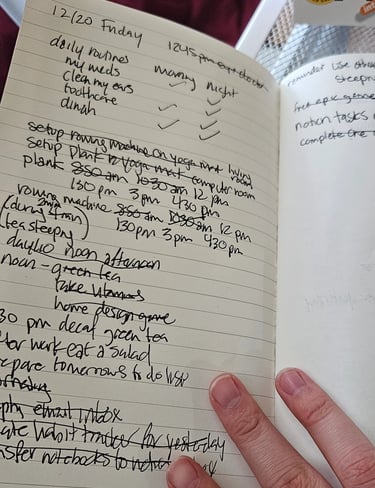 12/20 Friday 1245 pm
daily routines morning night
my meds
clean my ears
toothcare
dinah
setup rowing machine on yoga mat living room
setup plank to yoga mat computer room
plank 850 am 1030 am 12 pm
130 pm 3 pm 430 pm
rowing machine 850 am 1030 am 12 pm
(during 4 min 130 pm 3 pm 430 pm
tea steeping)
daylio noon afternoon
noon - green tea
take vitamins
home design game
30 pm decaf green tea
work - eat a salad
epare tomorrows to do list
email inbox
ate habit tracker for yesterday
nsfer notebooks to
reminder use
steeping
free epic game
notion tasks
complete one